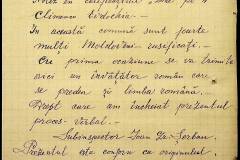 Climenco Evdochia. —
În această comună sunt foarte
mulți Moldoveni rusificați. —
Cu prima ocaziune se va trimite
aici un învățător român care
să predea și limba română. —
Drept care am încheiat prezentul
proces-verbal. —
Subinspector Ioan Gr. Șerban.
Prezentul este conform cu originalul.